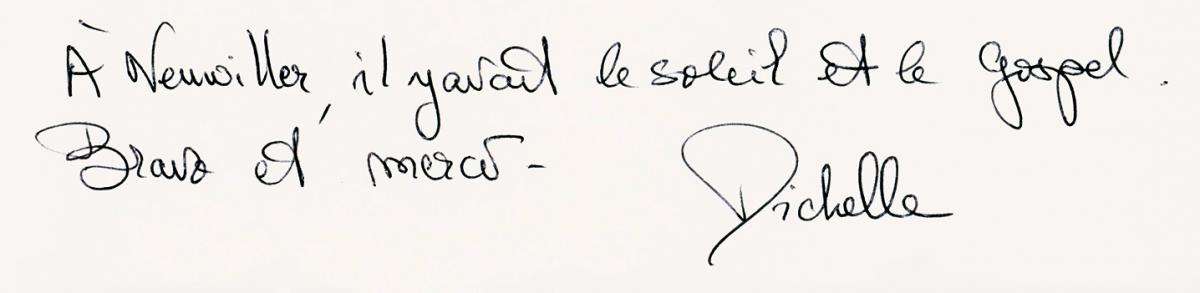 À Neuwiller, il y avait le soleil et le Gospel.
Bravo et merci -
Michelle